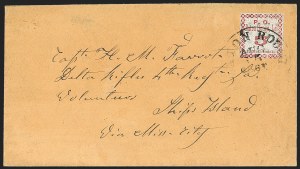 P. O.
ON ROU
Capt. H. M. Favrot
Delta Rifles 4th Regt La.
Volunteers
Ships Island
Via Miss. City